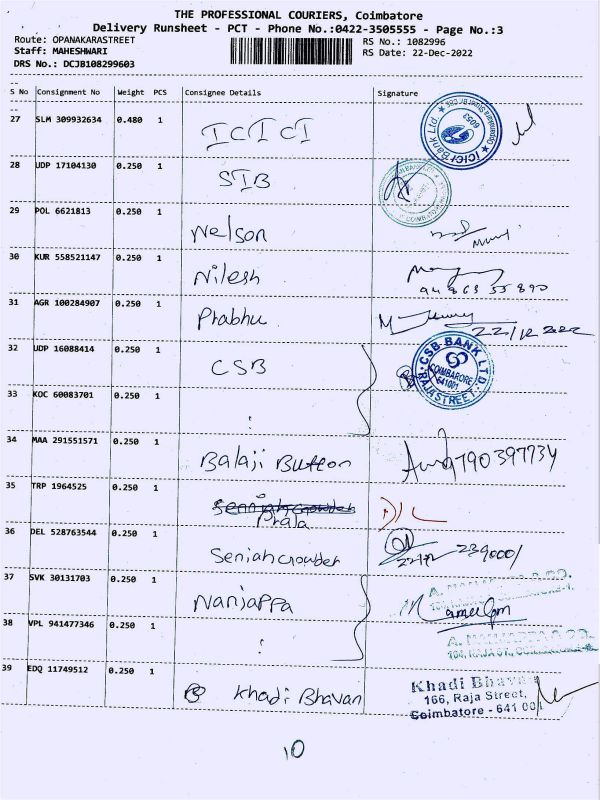 THE PROFESSIONAL COURIERS, Coimbatore
Delivery Runsheet - PCT - Phone No.:0422-3505555 - Page No.:3
Route: OPANAKARASTREET RS No.: 1082996
Staff: MAHESHWARI RS Date: 22-Dec-2022
DRS No.: DCJB108299603
S No Consignment No Weight PCS Consignee Details Signature
27 SLM 309932634 0.480 1 ICICI
ICICI Bank Ltd.
28 UDP 17104130 0.250 1 SIB
29 POL 6621813 0.250 1 Nelson
30 KUR 558521147 0.250 1 Nilesh
94863 55890
31 AGR 100284907 0.250 1 Prabhu
22/12/2022
32 UDP 16088414 0.250 1 CSB
CSB BANK LTD
COIMBATORE
641001
RAJA STREET
33 KOC 60083701 0.250 1 :
34 MAA 291551571 0.250 1 Balaji Button 9790397734
35 TRP 1964525 0.250 1
36 DEL 528763544 0.250 1
37 SVK 30131703 0.250 1 Nanjappa
38 VPL 941477346 0.250 1 :
39 EDQ 11749512 0.250 1 Khadi Bhavan
Khadi Bhavan
166, Raja Street,
Coimbatore - 641 001
10